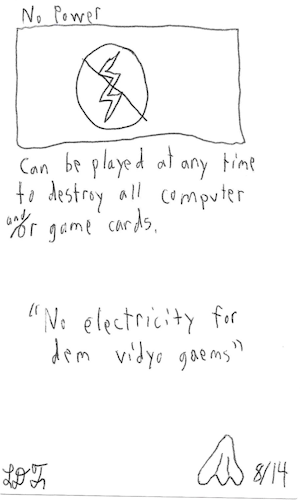 No Power
Can be played at any time
to destroy all computer
and/or game cards.
"No electricity for
dem vidyo gaems"
8/14